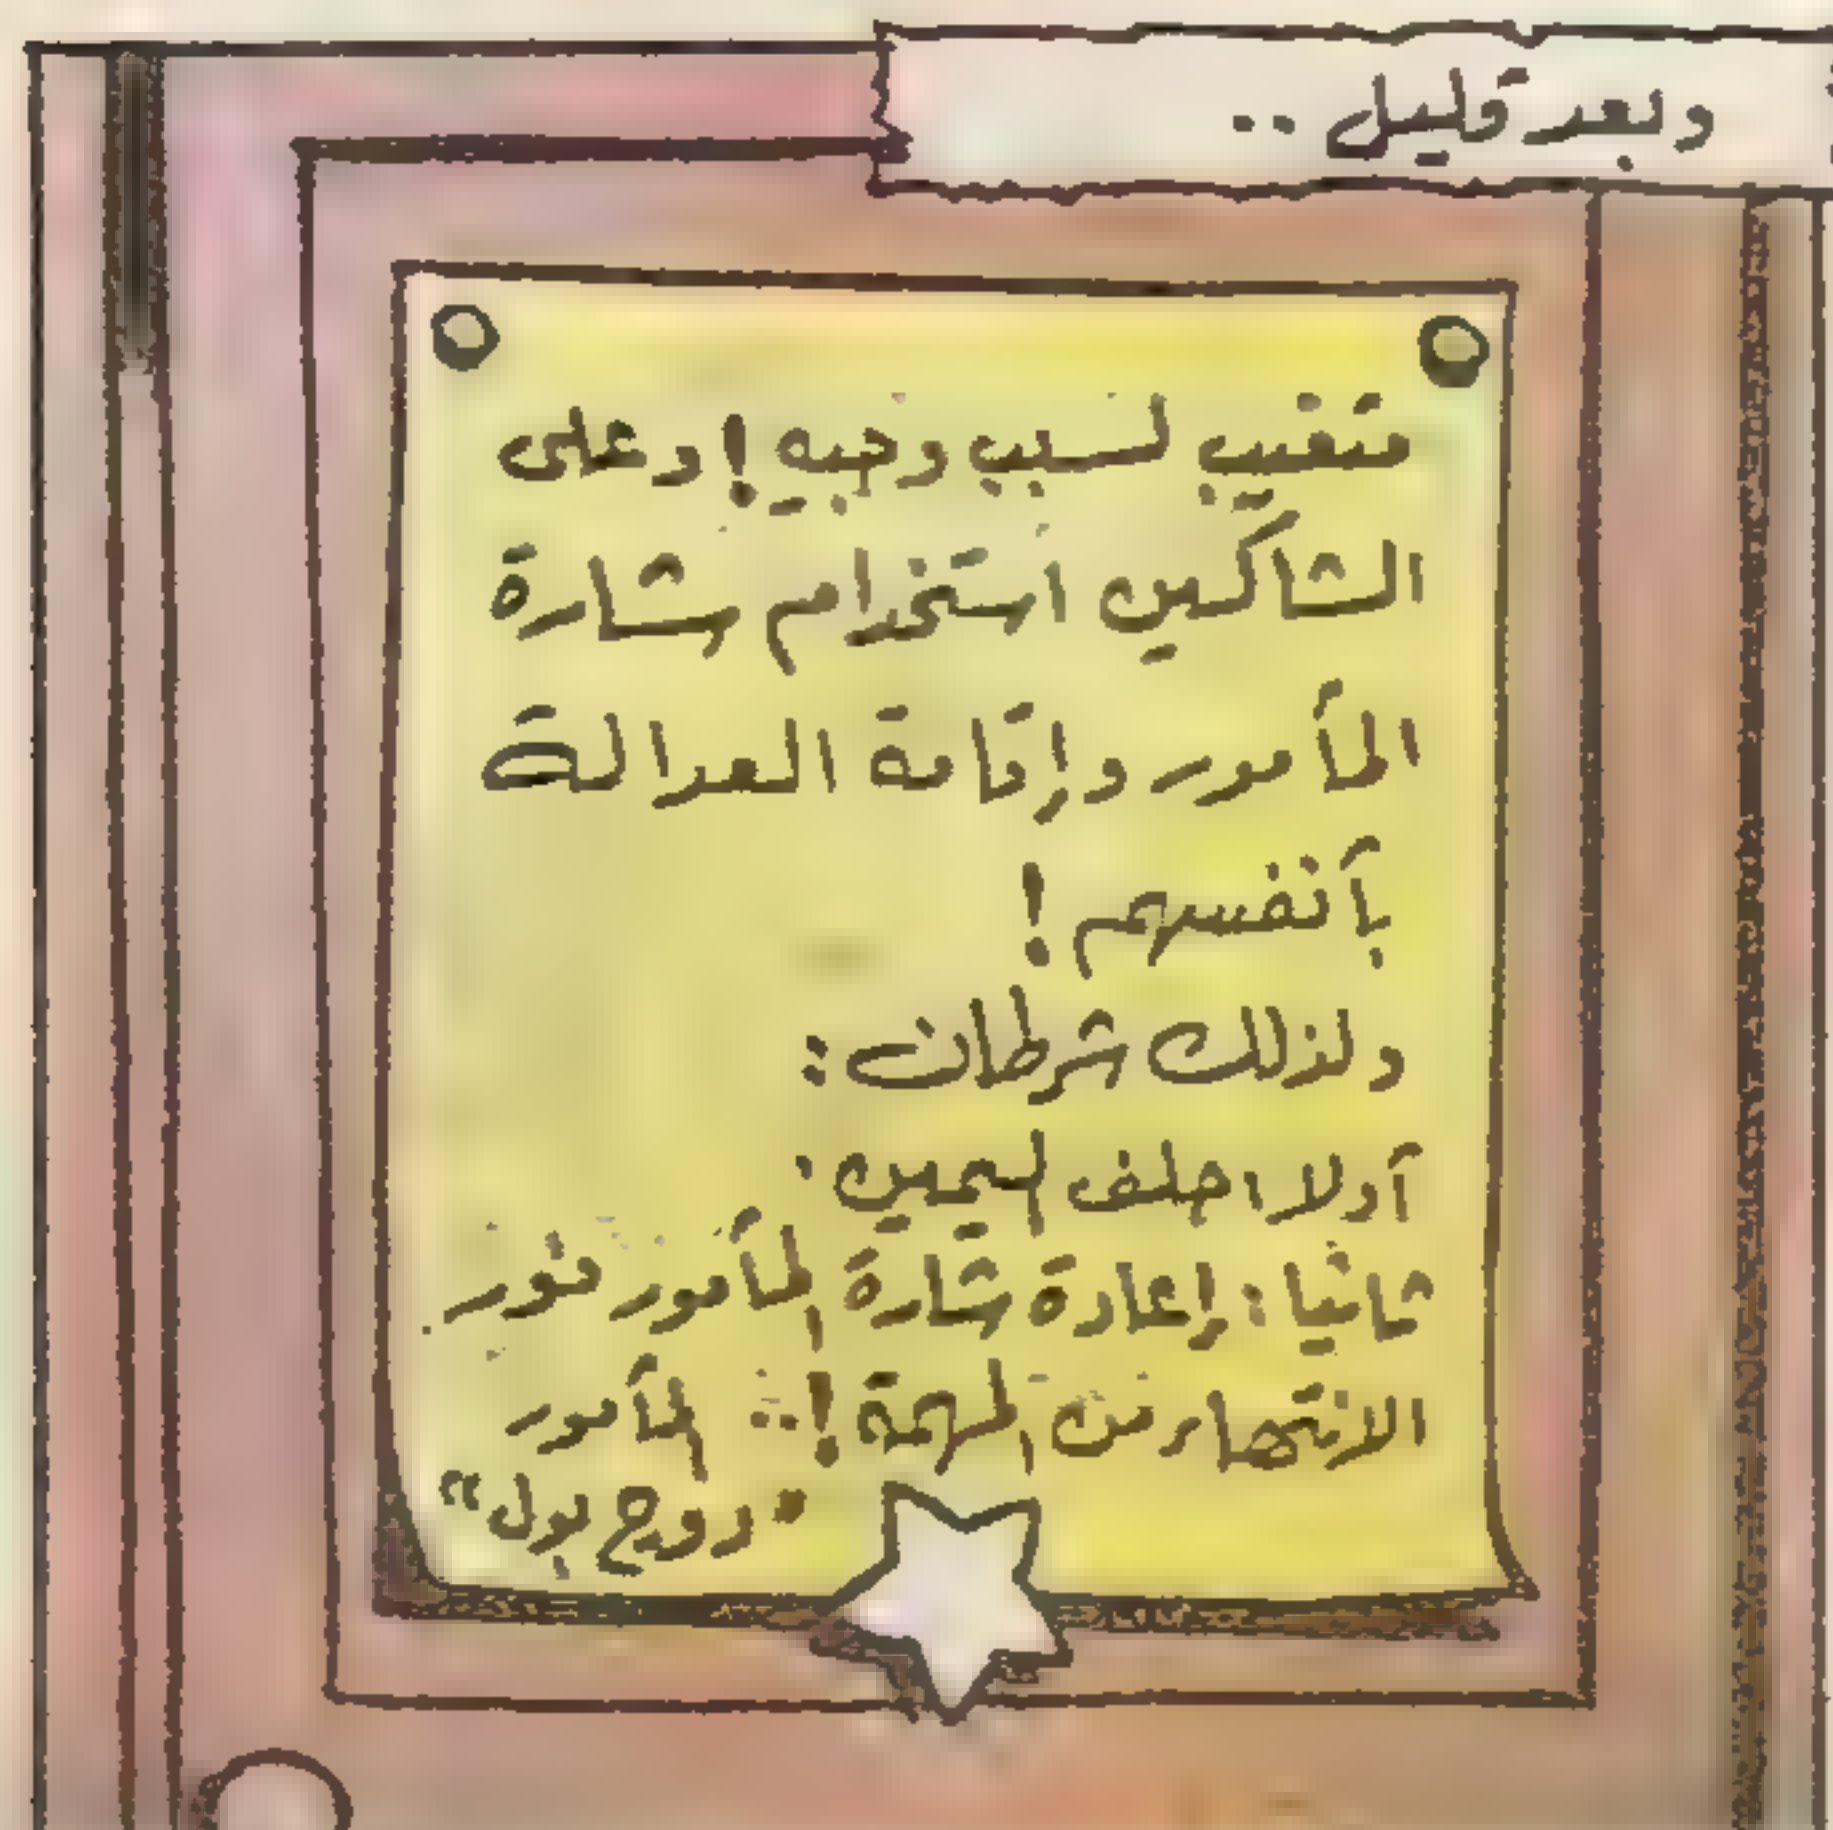 وبعد قليل ..
متغيب لسبب وجيه ! وعلى
الشاكين استخدام شارة
المأمور وإقامة العدالة
بأنفسهم !
ولذلك شرطان :
أولا احلف اليمين .
ثانيا : إعادة شارة المأمور فور
الانتهاء من المهمة ! .. المأمور
" دورج بول "